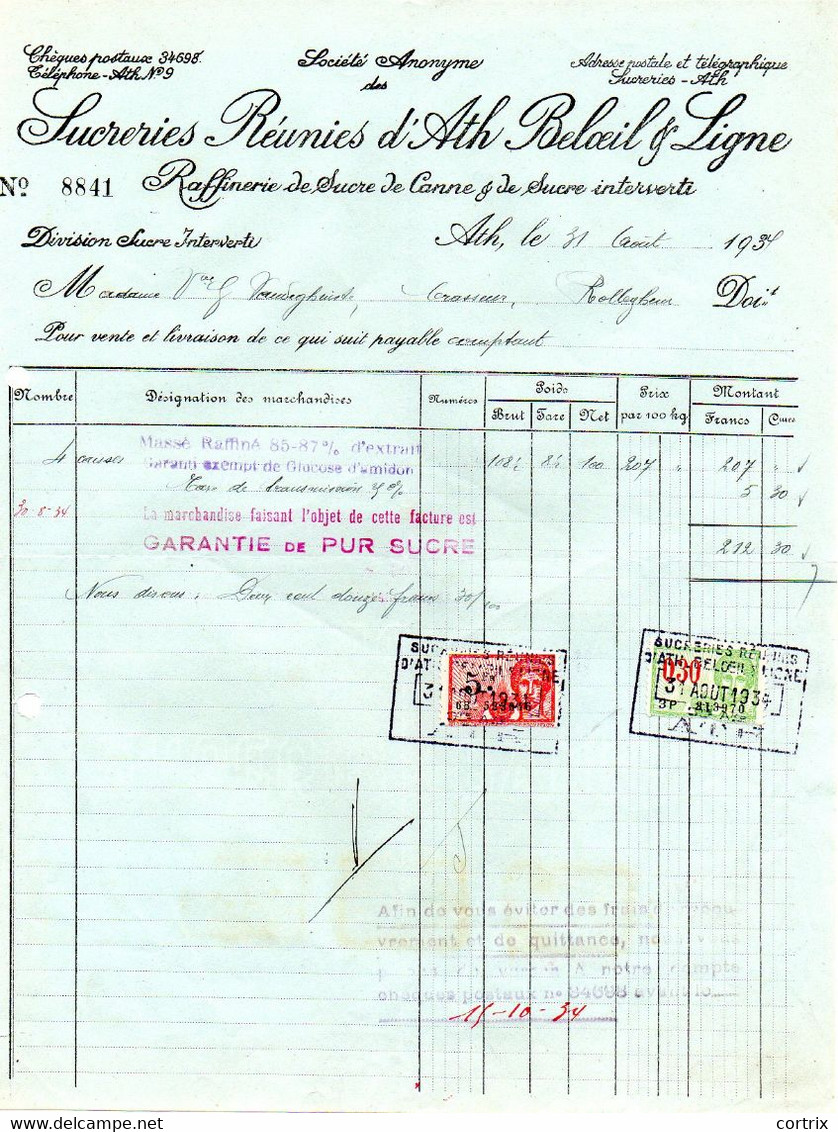 Chèques postaux 34698.
Téléphone - Ath Nº 9
Société Anonyme
des
Adresse postale et télégraphique
Sucreries - Ath
Sucreries Réunies d'Ath Belœil & Ligne
Nº 8841
Raffinerie de Sucre de Canne & de Sucre interverti
Division Sucre Interverti
Ath, le 31 Août 1934
Madame Vve G Vandeghinste, Brasseur, Rolleghem Doit
Pour vente et livraison de ce qui suit payable comptant
Nombre Désignation des marchandises Numéros Poids Prix Montant
Brut Tare Net par 100 kg Francs Cmes
Massé Raffiné 85-87% d'extrait
4 caisses 108½ 8½ 100 207 " 207 "
Garanti exempt de Glucose d'amidon
Taxe de transmission 2½ % 5 30
30-8-34
La marchandise faisant l'objet de cette facture est
GARANTIE DE PUR SUCRE
212 30
Nous disons : Deux cent douze francs 30/100
SUCRERIES RÉUNIES
D'ATH BELŒIL & LIGNE
5
31 1934
SUCRERIES RÉUNIES
D'ATH BELŒIL & LIGNE
0.30
31 AOUT 1934
3P 813970
ATH
Afin de vous éviter des frais de recou-
vrement et de quittance,
à notre compte
chèques postaux nº 34698 avant le
15-10-34
cortrix